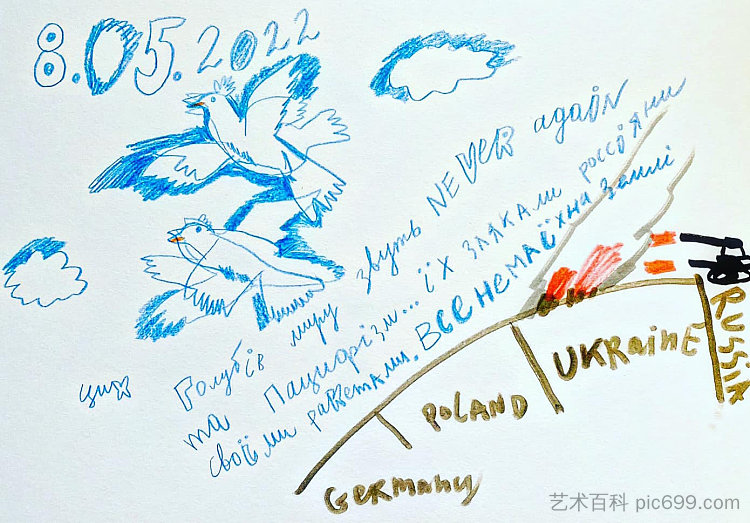 8.05.2022
цих Голубів миру звуть NEVER again
та Пацифізм... їх злякали россіяни
своїми ракетами. ВСЕ НЕМА їх на землі
GERMANY
POLAND
UKRAINE
RUSSIA
艺术百科 pic699.com